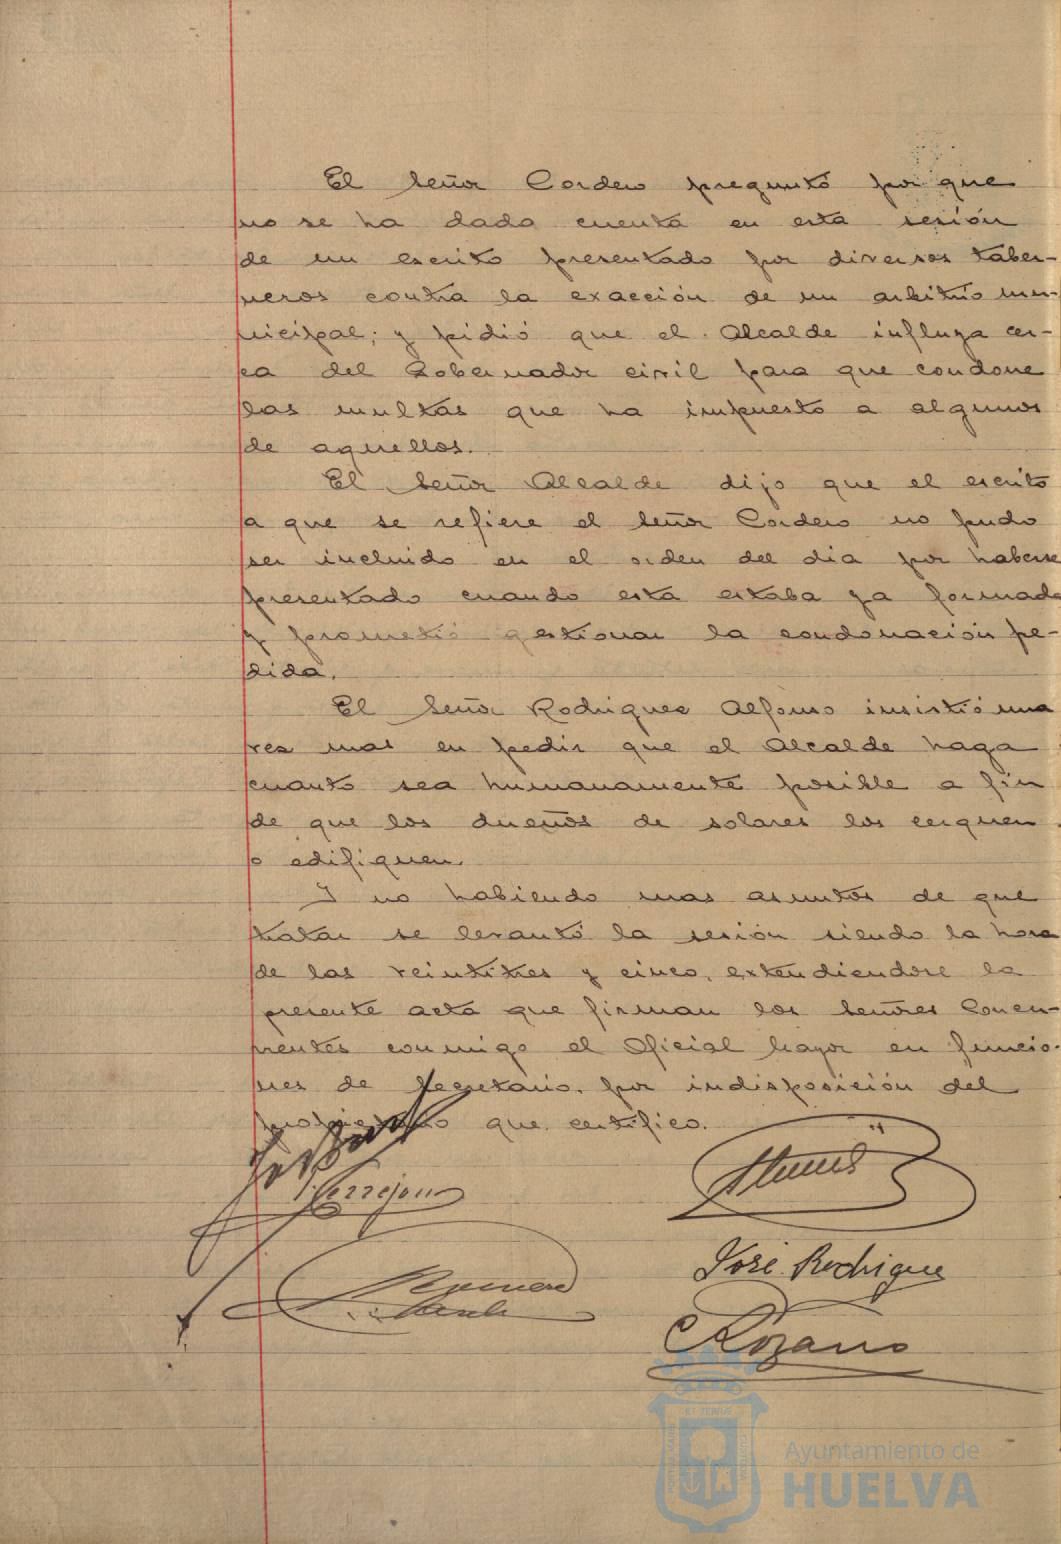 El Señor Cordero preguntó por que
no se ha dado cuenta en esta sesión
de un escrito presentado por diversos taber-
neros contra la exacción de un arbitrio mu-
nicipal; y pidió que el Alcalde influya cer-
ca del Gobernador civil para que condone
las multas que ha impuesto a algunos
de aquellos.
El Señor Alcalde dijo que el escrito
a que se refiere el Señor Cordero no pudo
ser incluido en el orden del dia por haberse
presentado cuando esta estaba ya formada
y prometió gestionar la condonación pe-
dida.
El Señor Rodriguez Alfonso insistió una
vez mas en pedir que el Alcalde haga
cuanto sea humanamente posible a fin
de que los dueños de solares los cerquen
o edifiquen.
Y no habiendo mas asuntos de que
tratar se levantó la sesión siendo la hora
de las veintitres y cinco, extendiendose la
presente acta que firman los Señores Concu-
rrentes conmigo el Oficial Mayor en funcio-
nes de Secretario, por indisposición del
que certifico.
Terrejon
José Rodrigue
Lozano
Ayuntamiento de
HUELVA